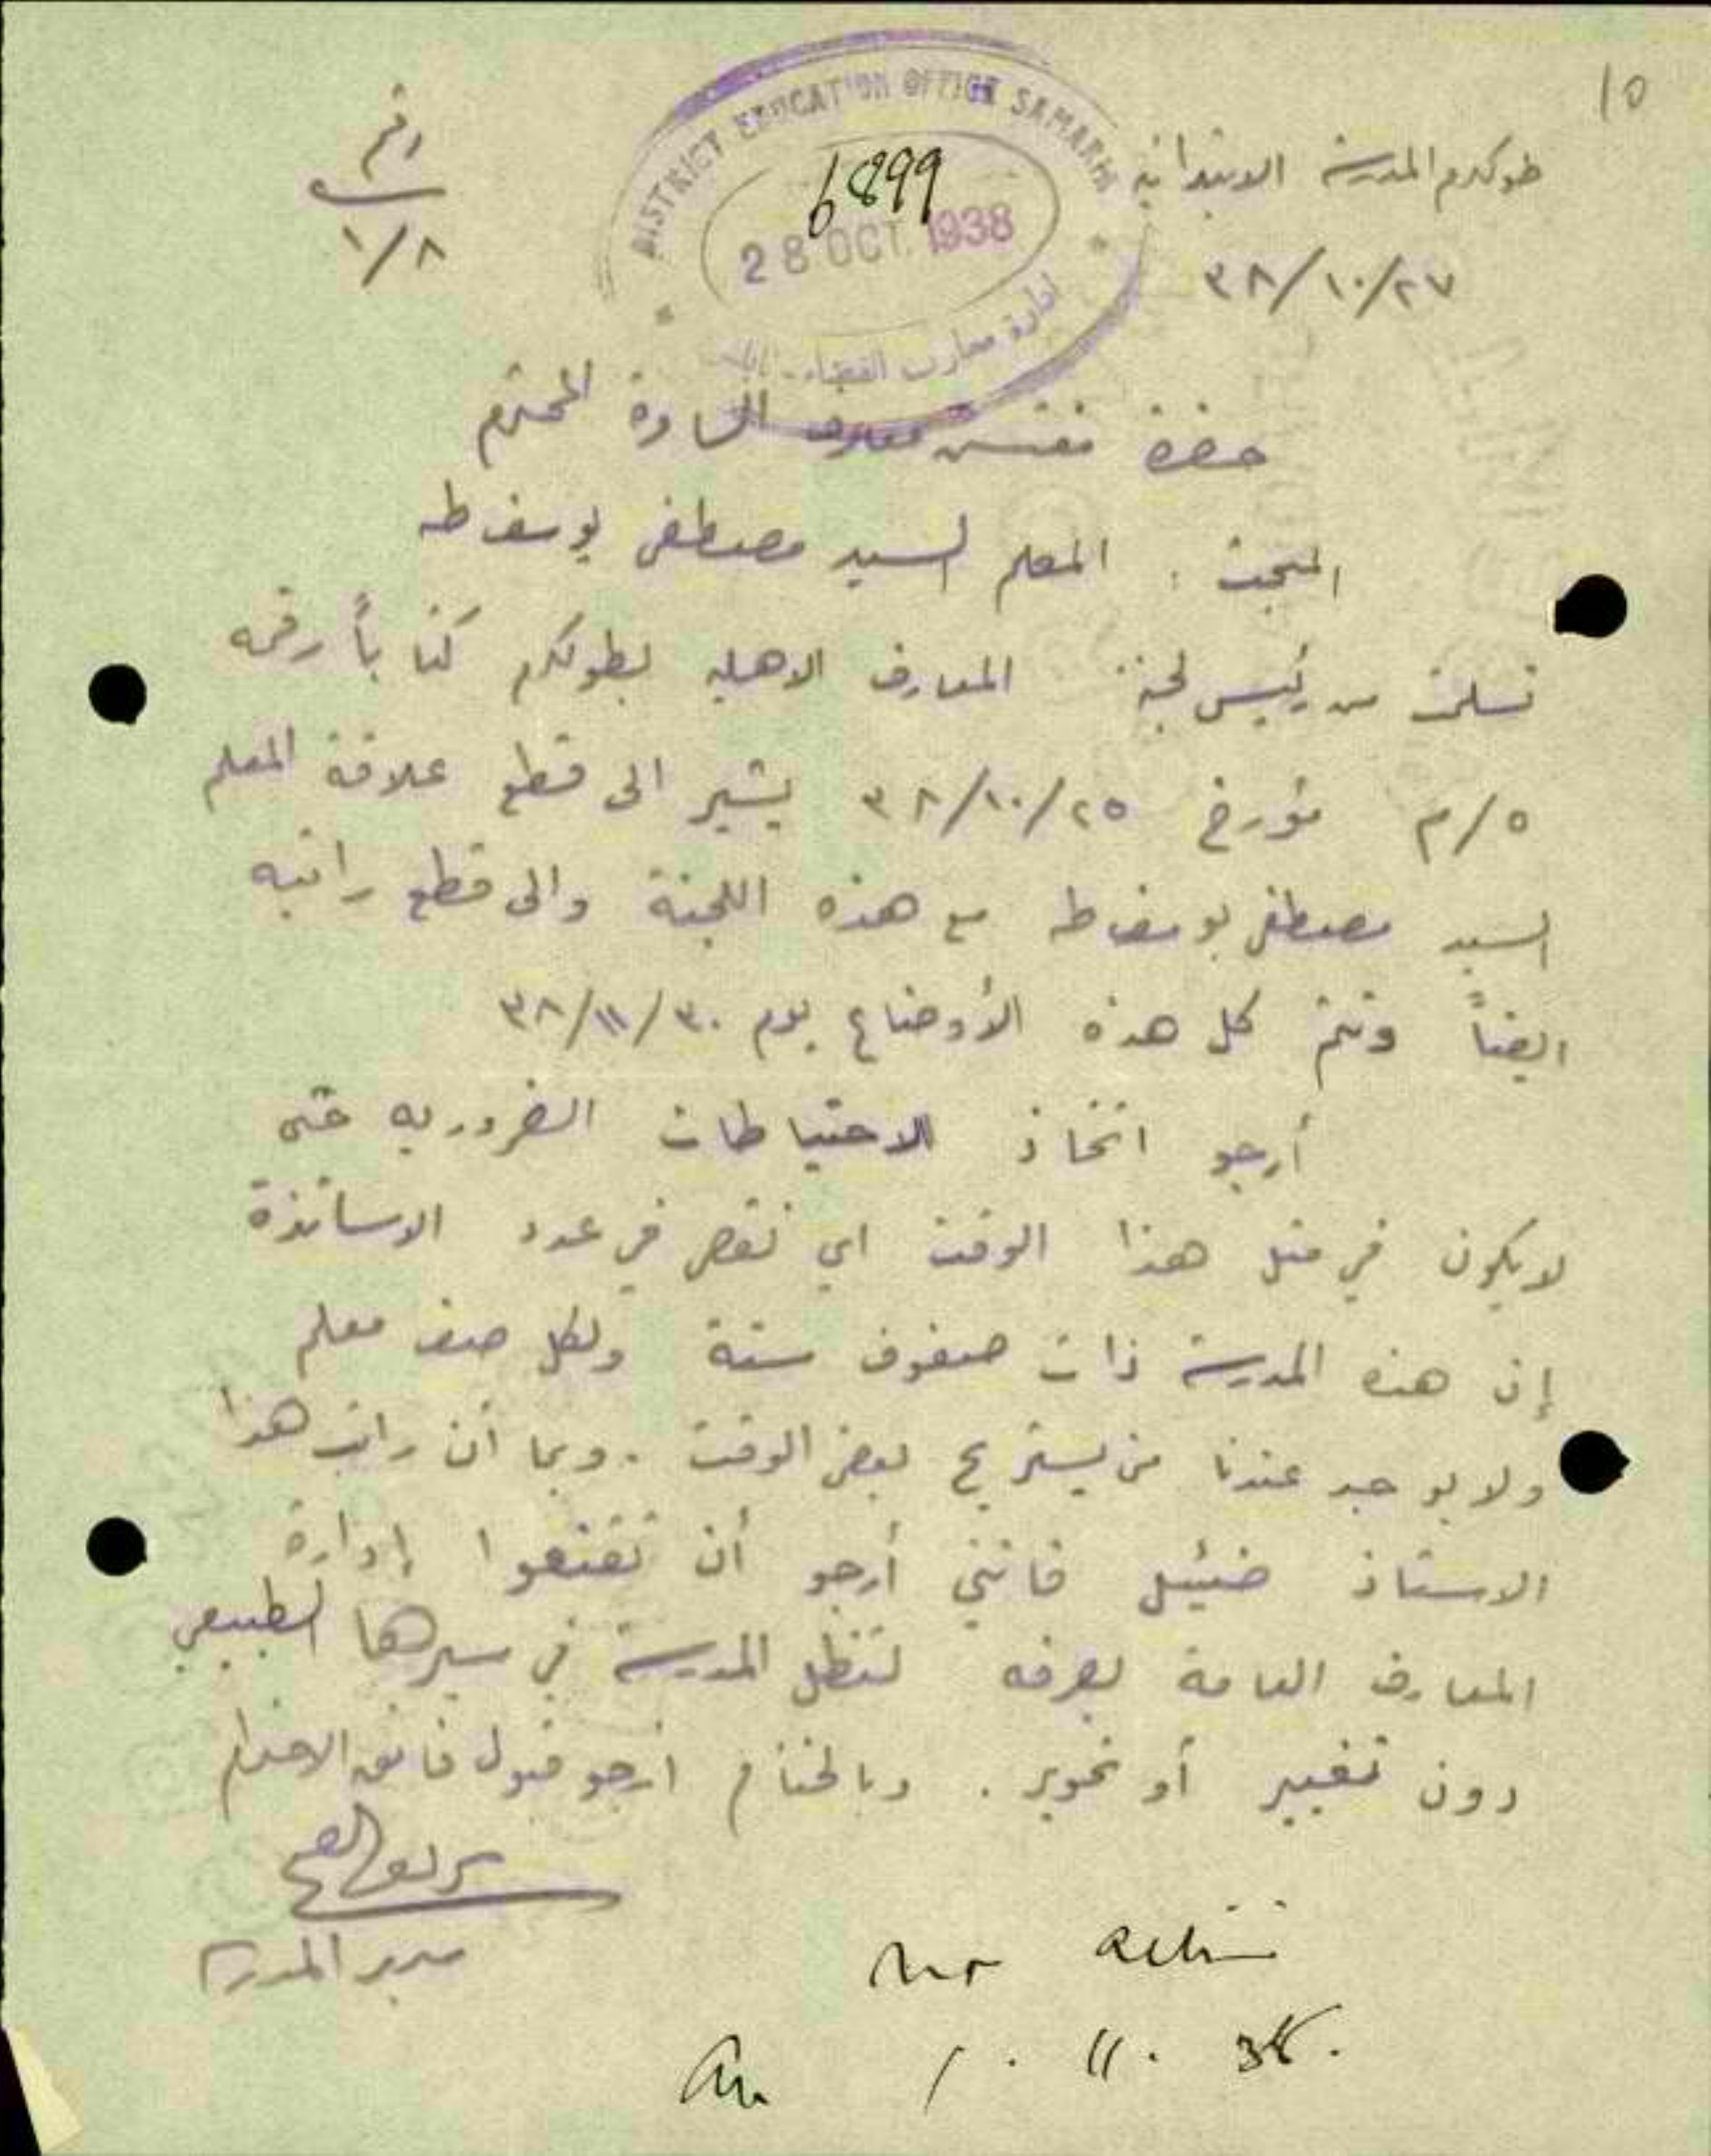 10
طولكرم المدرسة الابتدائية
٣٨/١٠/٢٧
رقم
١/٨
DISTRICT EDUCATION OFFICE SAMARIA
6899
28 OCT. 1938
ادارة معارف القضاء
حضرة مفتش معارف السامرة المحترم
المبحث : المعلم السيد مصطفى يوسف طه
تسلمت من رئيس لجنة المعارف الاهلية بطولكرم كتاباً رقمه
٥/م مؤرخ ٣٨/١٠/٢٥ يشير الى قطع علاقة المعلم
السيد مصطفى يوسف طه مع هذه اللجنة والى قطع راتبه
ايضاً وتتم كل هذه الأوضاع يوم ٣٨/١١/٣٠
أرجو اتخاذ الاحتياطات الضرورية حتى
لا يكون في مثل هذا الوقت اي نقص في عدد الاساتذة
إن هذه المدرسة ذات صفوف ستة ولكل صف معلم
ولا يوجد عندنا من يستريح بعض الوقت . وبما أن راتب هذا
الاستاذ ضئيل فانني أرجو أن تقنعوا إدارة
المعارف العامة بصرفه لتظل المدرسة في سيرها الطبيعي
دون تغيير أو تحوير . وبالختام ارجو قبول فائق الاحترام
مدير المدرسة
no action
1 . 11 . 38.